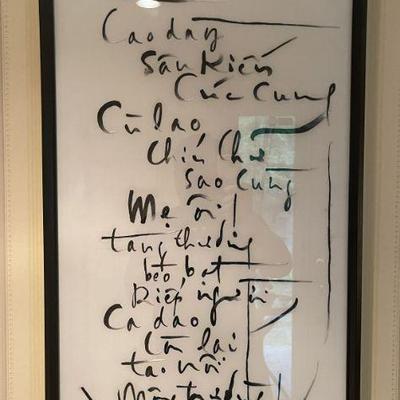 Cao dày
Sâu Kiến
Cúc Cung
Cù lao
Chín Chữ
Sao Cùng
Mẹ ơi!
tang thương
bèo bọt
Kiếp người
Ca dao
Còn lại
tạ nôi